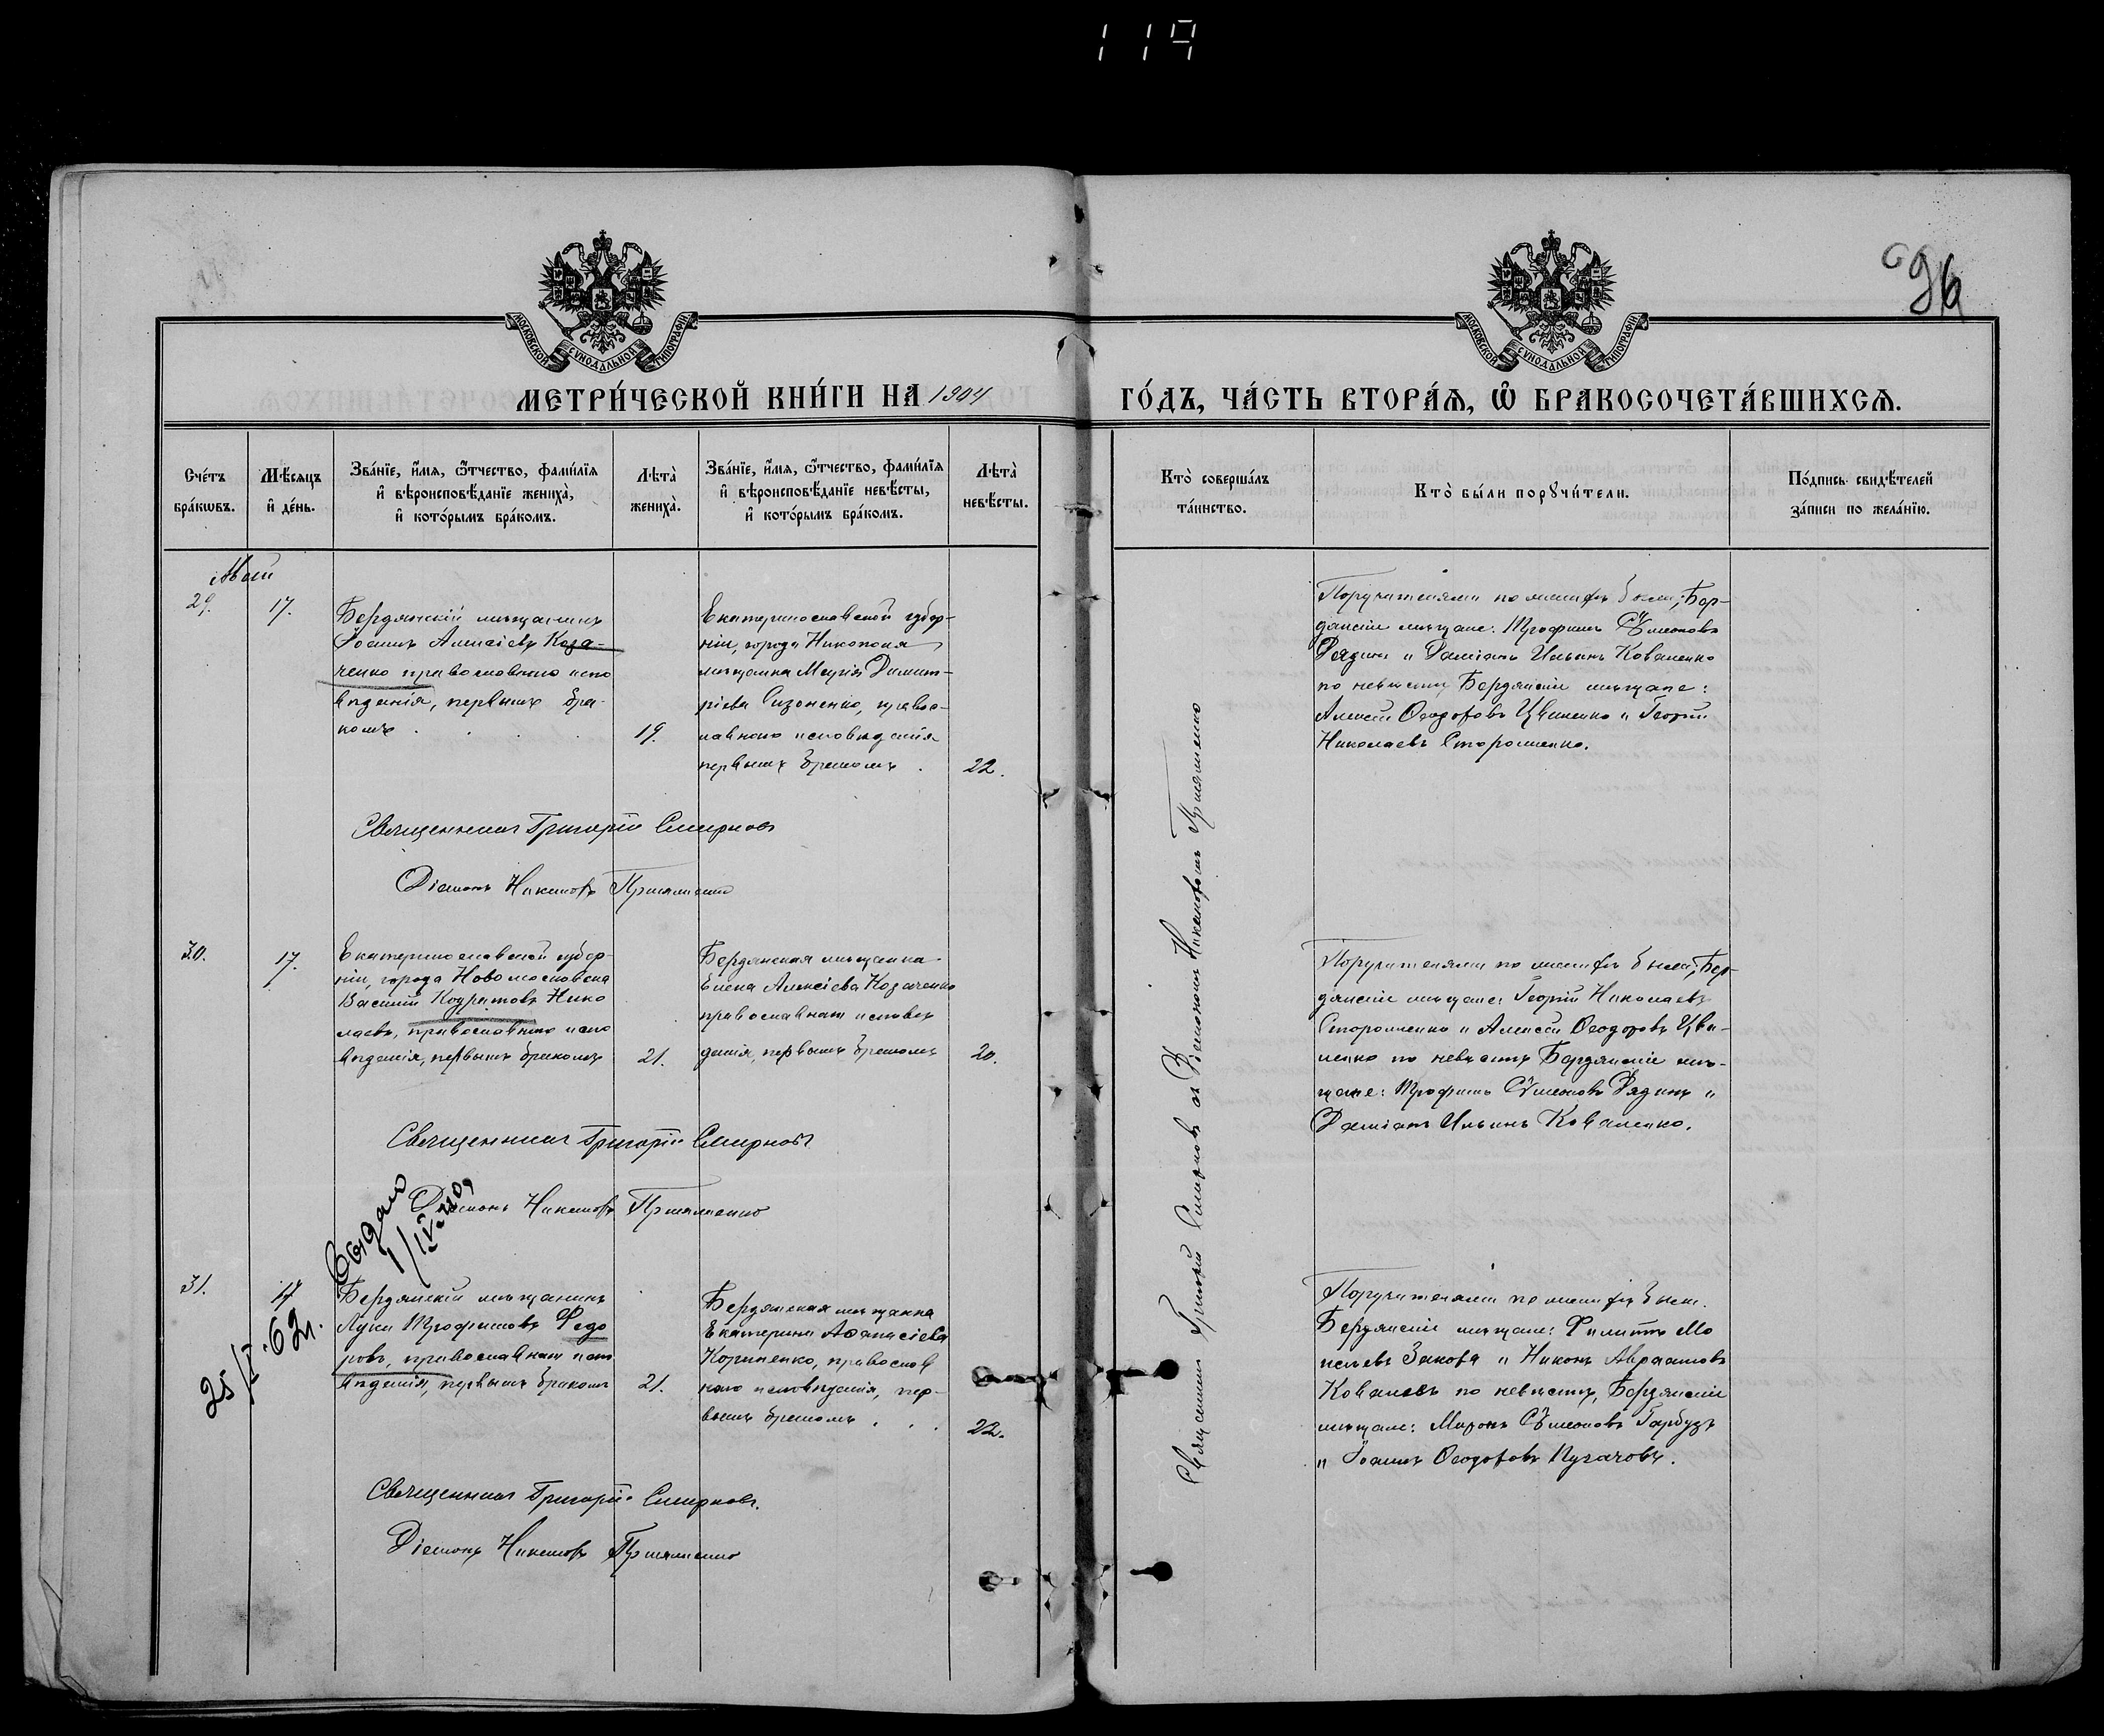 119
96
МОСКОВСКОЙ СѴНОДАЛЬНОЙ ТИПОГРАФІИ
МОСКОВСКОЙ СѴНОДАЛЬНОЙ ТИПОГРАФІИ
МЕТРИ́ЧЕСКОЙ КНИ́ГИ НА 1904
ГО́ДЪ, ЧА́СТЬ ВТОРА́Ѧ, Ѡ҆ БРАКОСОЧЕТА́ВШИХСѦ.
Сче́тъ
бра́кѡвъ.
Мѣ́сяцъ
и҆ де́нь.
Зва́нїе, и҆́мя, ѻ҆́тчество, фами́лїя
и҆ вѣроисповѣ́данїе жениха̀,
и҆ кото́рымъ бра́комъ.
Лѣта̀
жениха̀.
Зва́нїе, и҆́мя, ѻ҆́тчество, фами́лїя
и҆ вѣроисповѣ́данїе невѣ́сты,
и҆ кото́рымъ бра́комъ.
Лѣта̀
невѣ́сты.
Кто̀ соверша́лъ
та́инство.
Кто̀ бы́ли порꙋчи́тели.
По́дпись свидѣ́телей
за́писи по жела́нїю.
Май
29.
17.
Бердянскій мѣщанинъ
Іоаннъ Алексіевъ Коза-
ченко православнаго испо
вѣданія, первымъ бра-
комъ.
19.
Екатеринославской губер-
ніи, города Никополя
мѣщанка Марія Димит-
ріева Сизоненко, правос-
лавнаго исповѣданія
первымъ бракомъ.
22.
Поручителями по женихѣ были; Бер-
дянскіе мѣщане: Трофимъ Сѵмеоновъ
Рядинъ и Даміанъ Ильинъ Коваленко
по невѣстѣ Бердянскіе мѣщане:
Алексій Ѳеодоровъ Цвиленко и Георгій
Николаевъ Стороженко.
Священникъ Григорій Смирновъ
Діаконъ Никаноръ Пришляченко
30.
17.
Екатеринославской губер-
ніи, города Новомосковска
Василій Кодратовъ Нико
лаевъ, православнаго испо
вѣданія, первымъ бракомъ
21.
Бердянская мѣщанка
Елена Алексіева Козаченко
православнаго исповѣ
данія, первымъ бракомъ
20.
Поручителями по женихѣ были; Бер-
дянскіе мѣщане: Георгій Николаевъ
Стороженко и Алексій Ѳеодоровъ Цви-
ленко по невѣстѣ Бердянскіе мѣ-
щане: Трофимъ Сѵмеоновъ Рядинъ и
Даміанъ Ильинъ Коваленко.
Священникъ Григорій Смирновъ
Діаконъ Никаноръ Пришляченко
Выдано
31.
17
25/I-62г.
Бердянскій мѣщанинъ
Лука Трофимовъ Федо
ровъ, православнаго испо
вѣданія, первымъ бракомъ
21.
Бердянская мѣщанка
Екатерина Аѳанасіева
Корниенко, православ
наго исповѣданія, пер-
вымъ бракомъ.
22.
Поручителями по женихѣ были.
Бердянскіе мѣщане: Филиппъ Мо
исеевъ и Никонъ Авраамовъ
Ковалевъ по невѣстѣ, Бердянскіе
мѣщане: Миронъ Сѵмеоновъ Гарбузъ
и Іоаннъ Ѳеодоровъ Пугачовъ.
Священникъ Григорій Смирновъ.
Діаконъ Никаноръ Пришляченко
Священникъ Григорій Смирновъ съ Діакономъ Никаноромъ Пришляченко